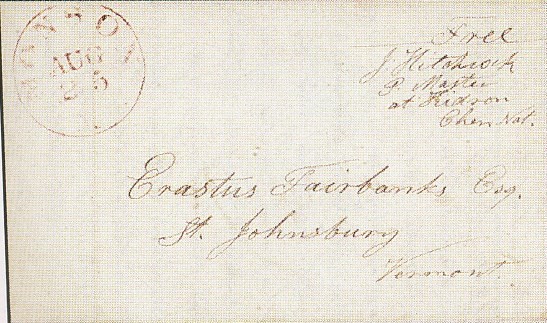 MONSON
AUG
25
Free
J. Hitchcock
P. Master
at Kidron
Cher. Nat.
Erastus Fairbanks Esq.
St. Johnsbury
Vermont.